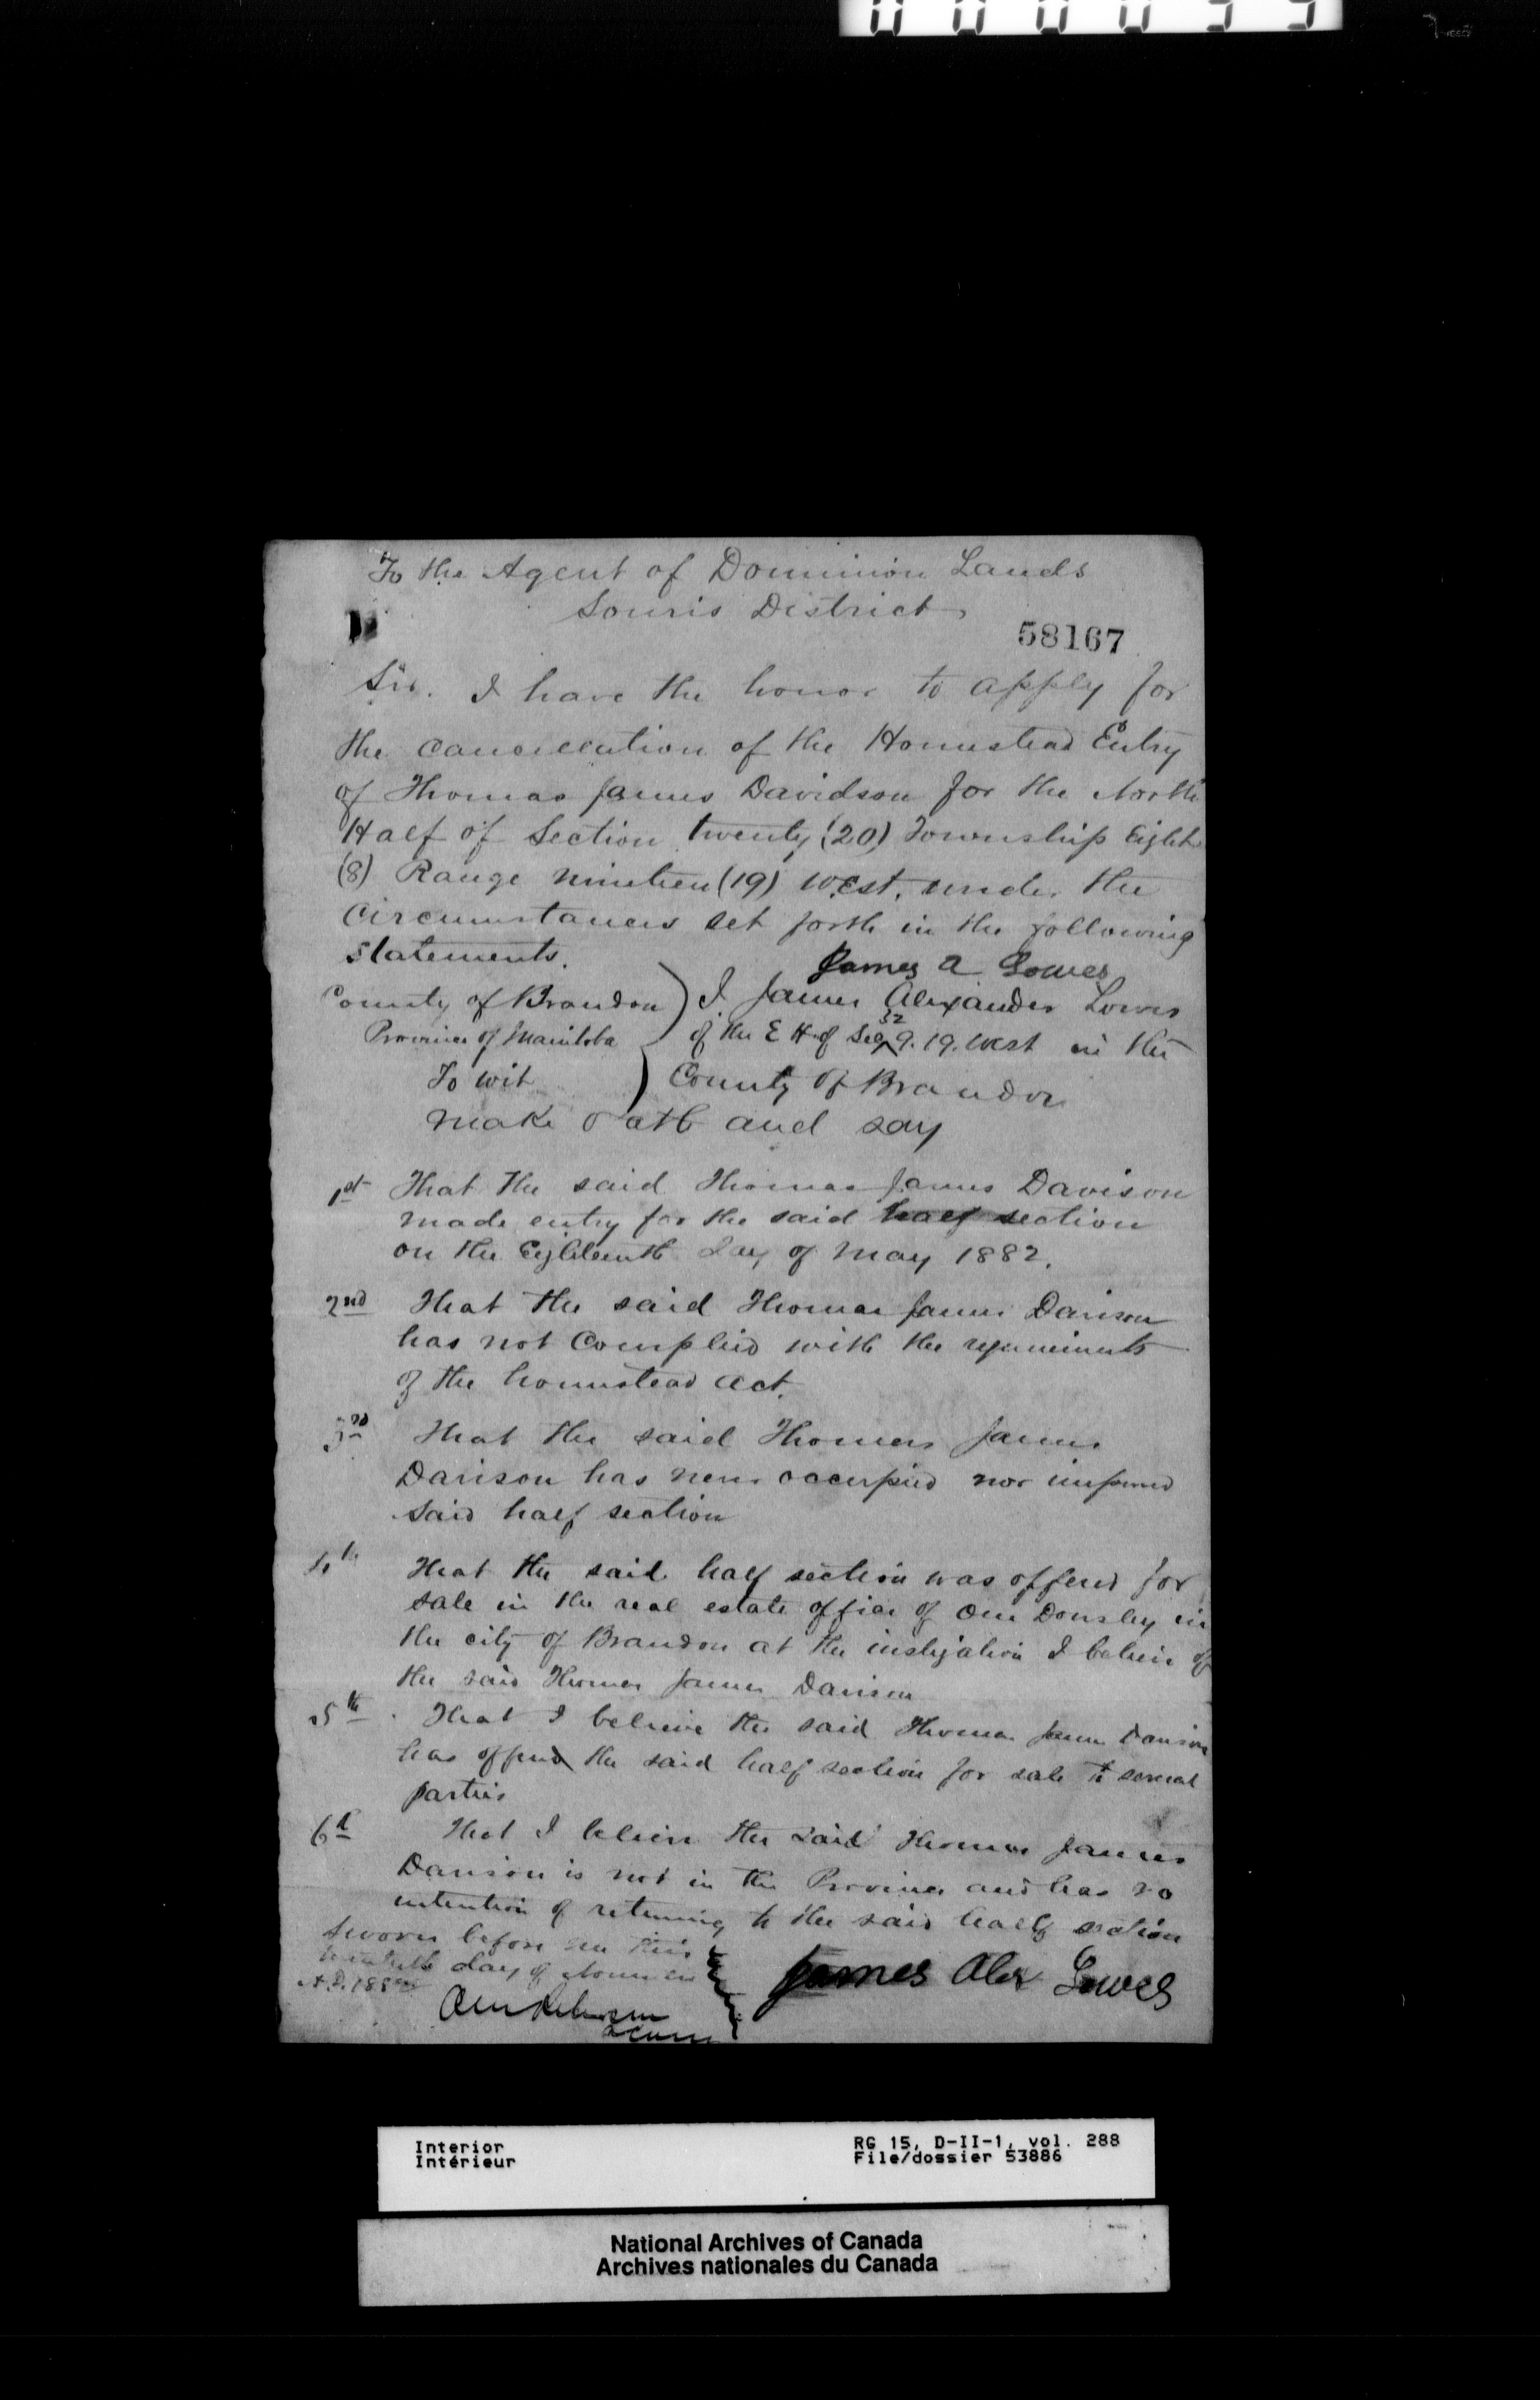 To the Agent of Dominion Lands
Souris District
58167
Sir. I have the honor to apply for
the cancellation of the Homestead Entry
of Thomas James Davidson for the North
Half of Section twenty (20) Township Eight
(8) Range nineteen (19) West, under the
Circumstances set forth in the following
statements.
James A Lowes
County of Brandon ) I James Alexander Lowes
Province of Manitoba of the E H of Sec 32 9. 19. West in the
To wit ) County of Brandon
make oath and say
1st That the said Thomas James Davison
made entry for the said half section
on the Eighteenth day of May 1882.
2nd That the said Thomas James Davison
has not Complied with the requirements
of the homestead act.
3rd That the said Thomas James
Davison has never occupied nor improved
said half section
4th That the said half section was offered for
sale in the real estate office of one Donsley in
the city of Brandon at the instigation I believe of
the said Thomas James Davison
5th That I believe the said Thomas James Davison
has offered the said half section for sale to several
parties
6th That I believe the said Thomas James
Davison is not in the Province and has no
intention of returning to the said half section
Sworn before me this
day of
A.D. 188
James Alex Lowes
Interior
Intérieur
RG 15, D-II-1, vol. 288
File/dossier 53886
National Archives of Canada
Archives nationales du Canada